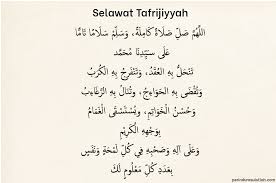 Selawat Tafrijiyyah
اللَّهُمَّ صَلِّ صَلَاةً كَامِلَةً، وَسَلِّمْ سَلَامًا تَامًّا
عَلَى سَيِّدِنَا مُحَمَّد
تَنْحَلُّ بِهِ الْعُقَدُ، وَتَنْفَرِجُ بِهِ الْكُرَبُ
وَتُقْضَى بِهِ الْحَوَائِجُ، وَتُنَالُ بِهِ الرَّغَائِبُ
وَحُسْنُ الْخَوَاتِمِ، وَيُسْتَسْقَى الْغَمَامُ
بِوَجْهِهِ الْكَرِيْمِ
وَعَلَى آلِهِ وَصَحْبِهِ فِي كُلِّ لَمْحَةٍ وَنَفَسٍ
بِعَدَدِ كُلِّ مَعْلُومٍ لَكَ